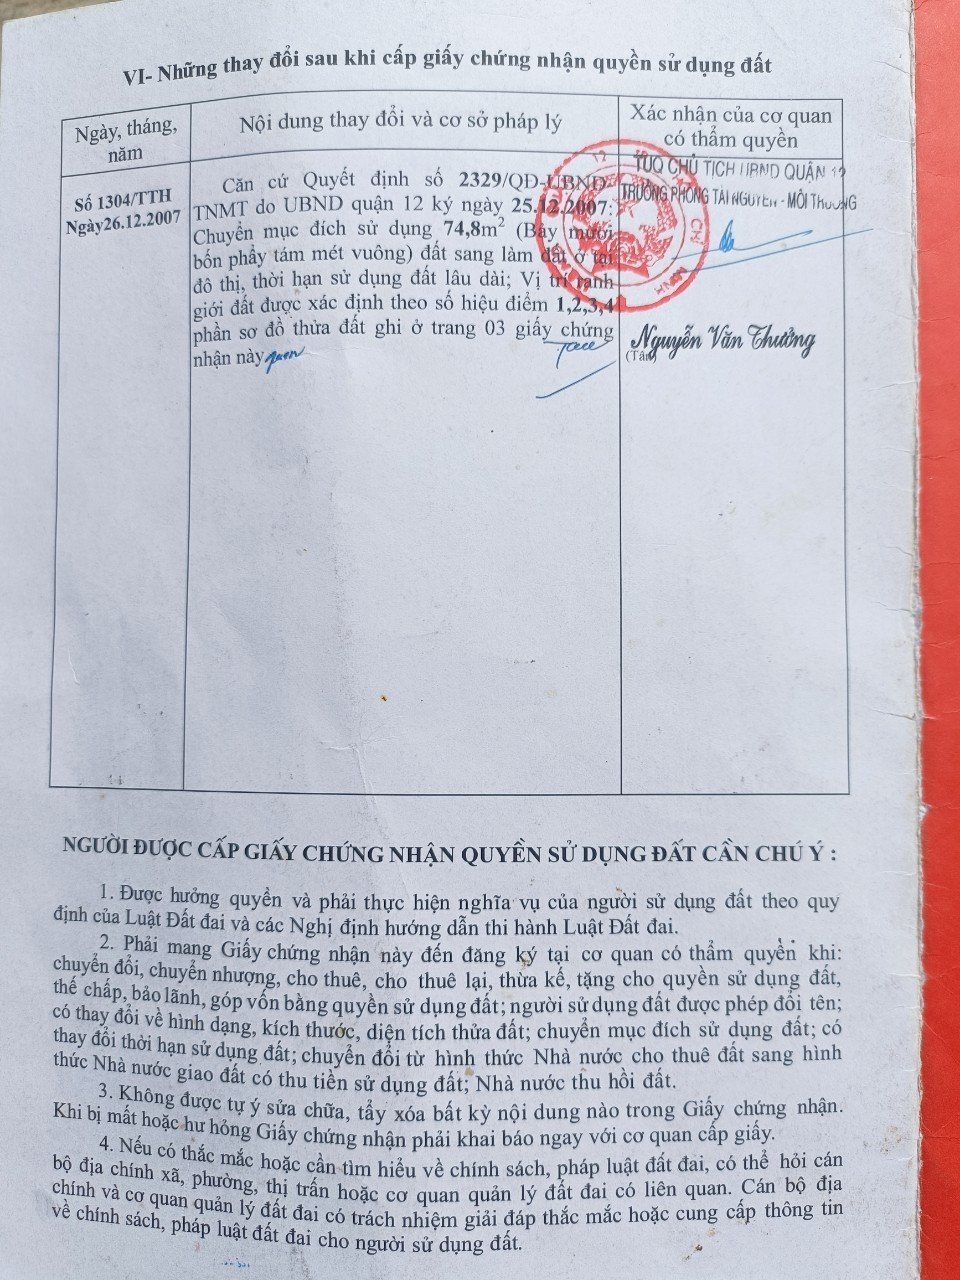 VI- Những thay đổi sau khi cấp giấy chứng nhận quyền sử dụng đất
Ngày, tháng,
năm
Nội dung thay đổi và cơ sở pháp lý
Xác nhận của cơ quan
có thẩm quyền
Số 1304/TTH
Ngày26.12.2007
Căn cứ Quyết định số 2329/QĐ-UBND-
TNMT do UBND quận 12 ký ngày 25.12.2007:
Chuyển mục đích sử dụng 74,8m² (Bảy mươi
bốn phẩy tám mét vuông) đất sang làm đất ở tại
đô thị, thời hạn sử dụng đất lâu dài; Vị trí ranh
giới đất được xác định theo số hiệu điểm 1,2,3,4
phần sơ đồ thửa đất ghi ở trang 03 giấy chứng
nhận này
TUQ CHỦ TỊCH UBND QUẬN 12
TRƯỞNG PHÒNG TÀI NGUYÊN - MÔI TRƯỜNG
Nguyễn Văn Thưởng
(Tâm)
NGƯỜI ĐƯỢC CẤP GIẤY CHỨNG NHẬN QUYỀN SỬ DỤNG ĐẤT CẦN CHÚ Ý :
1. Được hưởng quyền và phải thực hiện nghĩa vụ của người sử dụng đất theo quy
định của Luật Đất đai và các Nghị định hướng dẫn thi hành Luật Đất đai.
2. Phải mang Giấy chứng nhận này đến đăng ký tại cơ quan có thẩm quyền khi:
chuyển đổi, chuyển nhượng, cho thuê, cho thuê lại, thừa kế, tặng cho quyền sử dụng đất,
thế chấp, bảo lãnh, góp vốn bằng quyền sử dụng đất; người sử dụng đất được phép đổi tên;
có thay đổi về hình dạng, kích thước, diện tích thửa đất; chuyển mục đích sử dụng đất; có
thay đổi thời hạn sử dụng đất; chuyển đổi từ hình thức Nhà nước cho thuê đất sang hình
thức Nhà nước giao đất có thu tiền sử dụng đất; Nhà nước thu hồi đất.
3. Không được tự ý sửa chữa, tẩy xóa bất kỳ nội dung nào trong Giấy chứng nhận.
Khi bị mất hoặc hư hỏng Giấy chứng nhận phải khai báo ngay với cơ quan cấp giấy.
4. Nếu có thắc mắc hoặc cần tìm hiểu về chính sách, pháp luật đất đai, có thể hỏi cán
bộ địa chính xã, phường, thị trấn hoặc cơ quan quản lý đất đai có liên quan. Cán bộ địa
chính và cơ quan quản lý đất đai có trách nhiệm giải đáp thắc mắc hoặc cung cấp thông tin
về chính sách, pháp luật đất đai cho người sử dụng đất.